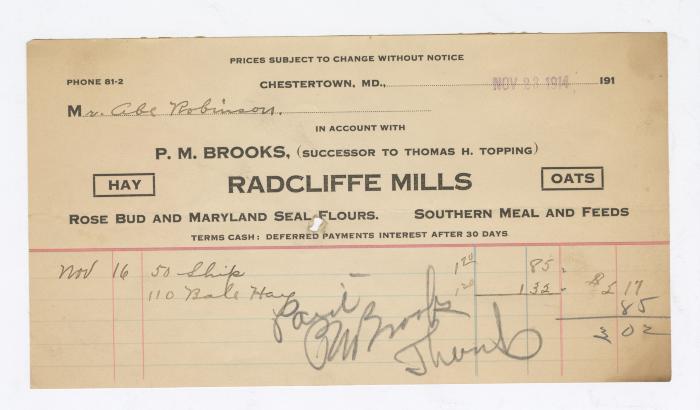 PRICES SUBJECT TO CHANGE WITHOUT NOTICE
PHONE 81-2
CHESTERTOWN, MD., NOV 23 1914 191
Mr. Abe Robinson.
IN ACCOUNT WITH
P. M. BROOKS, (SUCCESSOR TO THOMAS H. TOPPING)
HAY RADCLIFFE MILLS OATS
ROSE BUD AND MARYLAND SEAL FLOURS. SOUTHERN MEAL AND FEEDS
TERMS CASH: DEFERRED PAYMENTS INTEREST AFTER 30 DAYS
Nov 16 50 Ship 1.70 85.
110 Bale Hay 1.20 132. $ 2 17
Paid 85
PM Brooks 3 02
Thanks